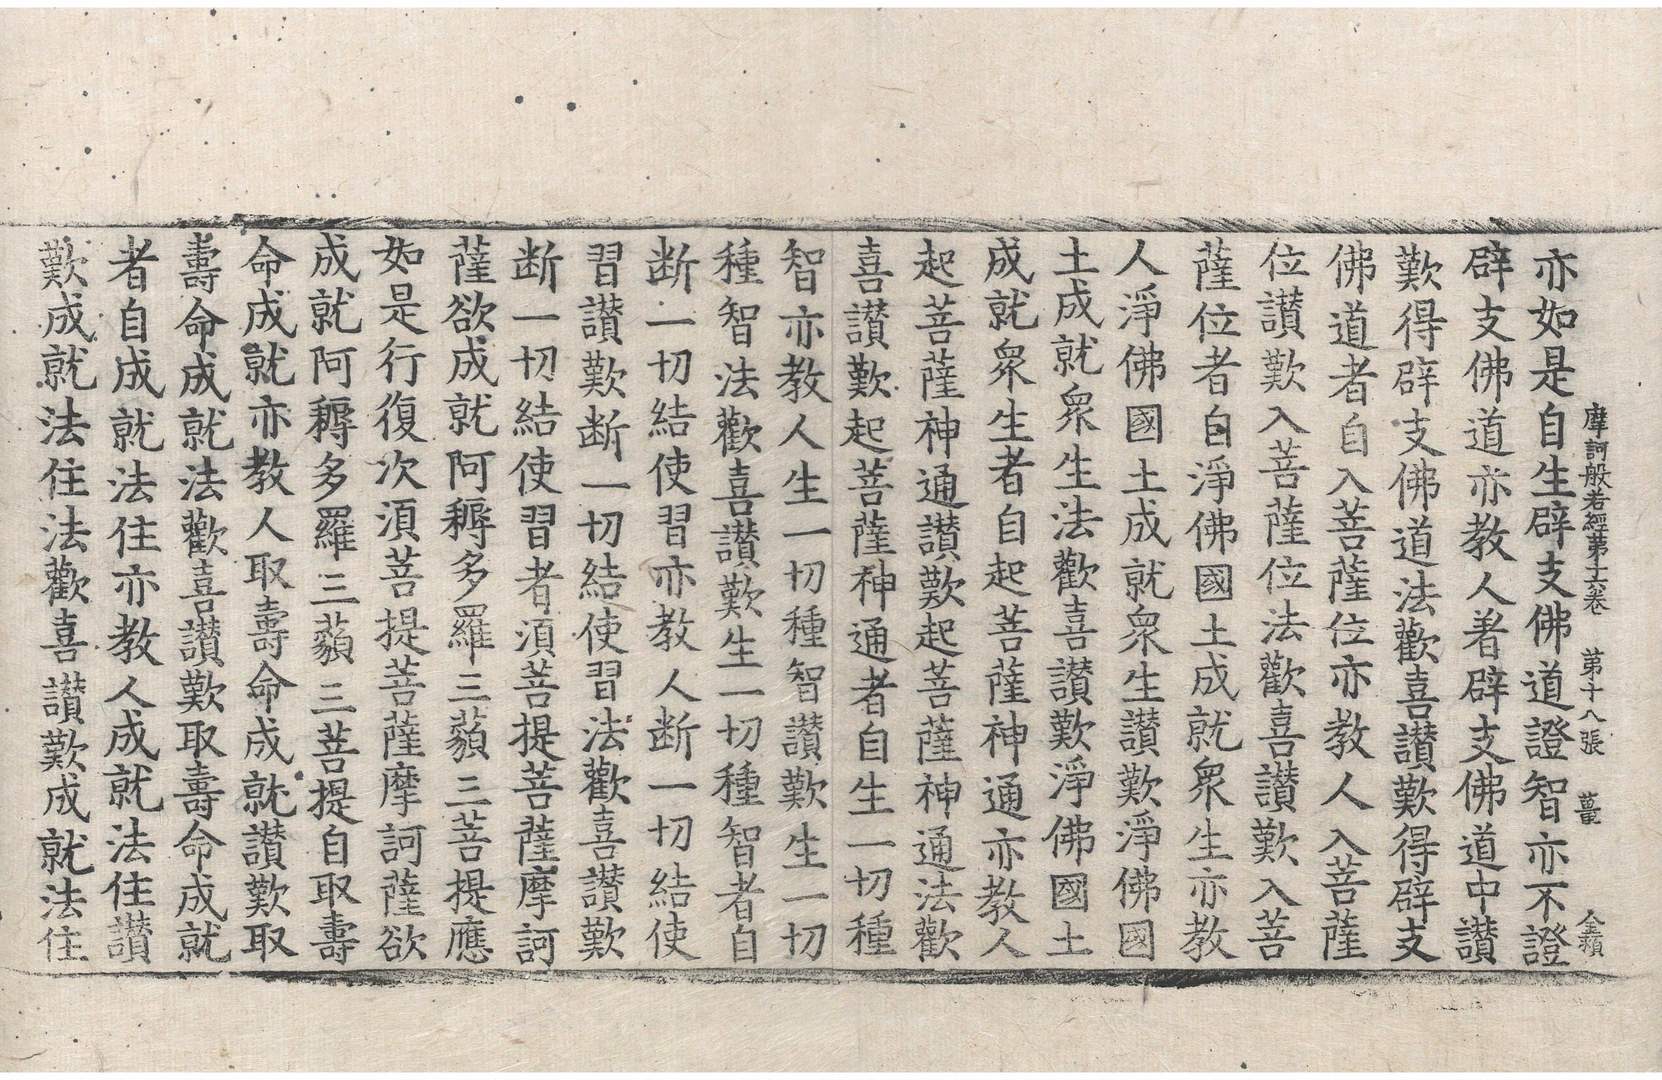 摩訶般若經第十六卷 第十八張 薑 金穎
亦如是自生辟支佛道證智亦不證
辟支佛道亦教人著辟支佛道中讚
歎得辟支佛道法歡喜讚歎得辟支
佛道者自入菩薩位亦教人入菩薩
位讚歎入菩薩位法歡喜讚歎入菩
薩位者自淨佛國土成就衆生亦教
人淨佛國土成就衆生讚歎淨佛國
土成就衆生法歡喜讚歎淨佛國土
成就衆生者自起菩薩神通亦教人
起菩薩神通讚歎起菩薩神通法歡
喜讚歎起菩薩神通者自生一切種
智亦教人生一切種智讚歎生一切
種智法歡喜讚歎生一切種智者自
断一切結使習亦教人断一切結使
習讚歎断一切結使習法歡喜讚歎
断一切結使習者須菩提菩薩摩訶
薩欲成就阿耨多羅三藐三菩提應
如是行復次須菩提菩薩摩訶薩欲
成就阿耨多羅三藐三菩提自取壽
命成就亦教人取壽命成就讚歎取
壽命成就法歡喜讚歎取壽命成就
者自成就法住亦教人成就法住讚
歎成就法住法歡喜讚歎成就法住